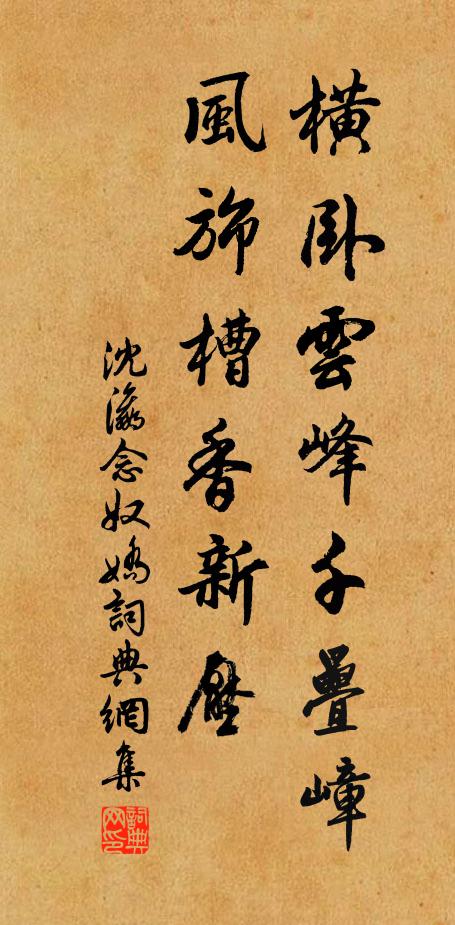 橫臥雲峰千疊嶂
風斾槽香新壓
沈瀛念奴嬌詞典網集
詞典网印